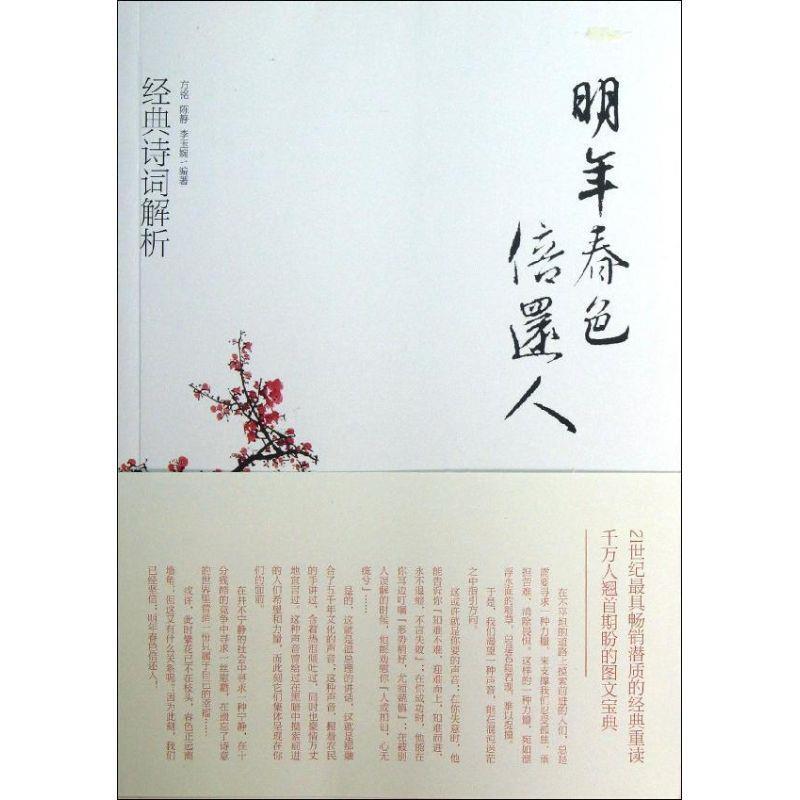 明年春色
倍還人
方铭 陈静 李玉婉 编著
经典诗词解析
21世纪最具畅销潜质的经典重读
千万人翘首期盼的图文宝典
在不平坦的道路上摸索前进的人们，总是
需要寻求一种力量，来支撑我们忍受孤独、承
担苦难、消除畏惧。这样的一种力量，宛如深
之中指引方向。
于是，我们渴望一种声音，能在混沌迷茫
这或许就是你要的声音：在你失意时，他
能告诉你“知难不难，迎难而上，知难而进，
永不退缩，不言失败”；在你成功时，他能在
你耳边叮嘱“形势稍好，尤须兢慎”；在被别
人误解的时候，他能劝慰你“人或加讪，心无
疵兮”……
是的，这就是温总理的讲话，这就是那融
合了五千年文化的声音；这种声音，握着农民
的手讲过，含着热泪倾吐过，同时也豪情万丈
地宣言过。这种声音曾给过在黑暗中摸索前进
的人们希望和力量，而此刻它们集体呈现在你
们的面前。
在并不宁静的社会中寻求一种宁静，在十
分残酷的竞争中寻求一丝慰藉，在遗忘了诗意
的世界里营造一份只属于自己的幸福……
或许，此时繁花已不在枝头，春色正远离
墙角；但这又有什么关系呢？因为此刻，我们
已经坚信：明年春色倍还人！